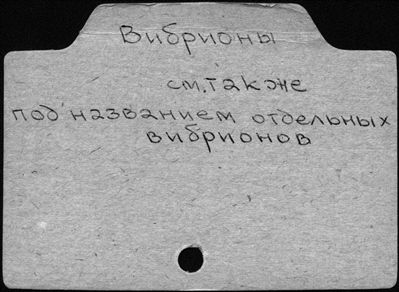 Вибрионы
см. также
под названием отдельных
вибрионов